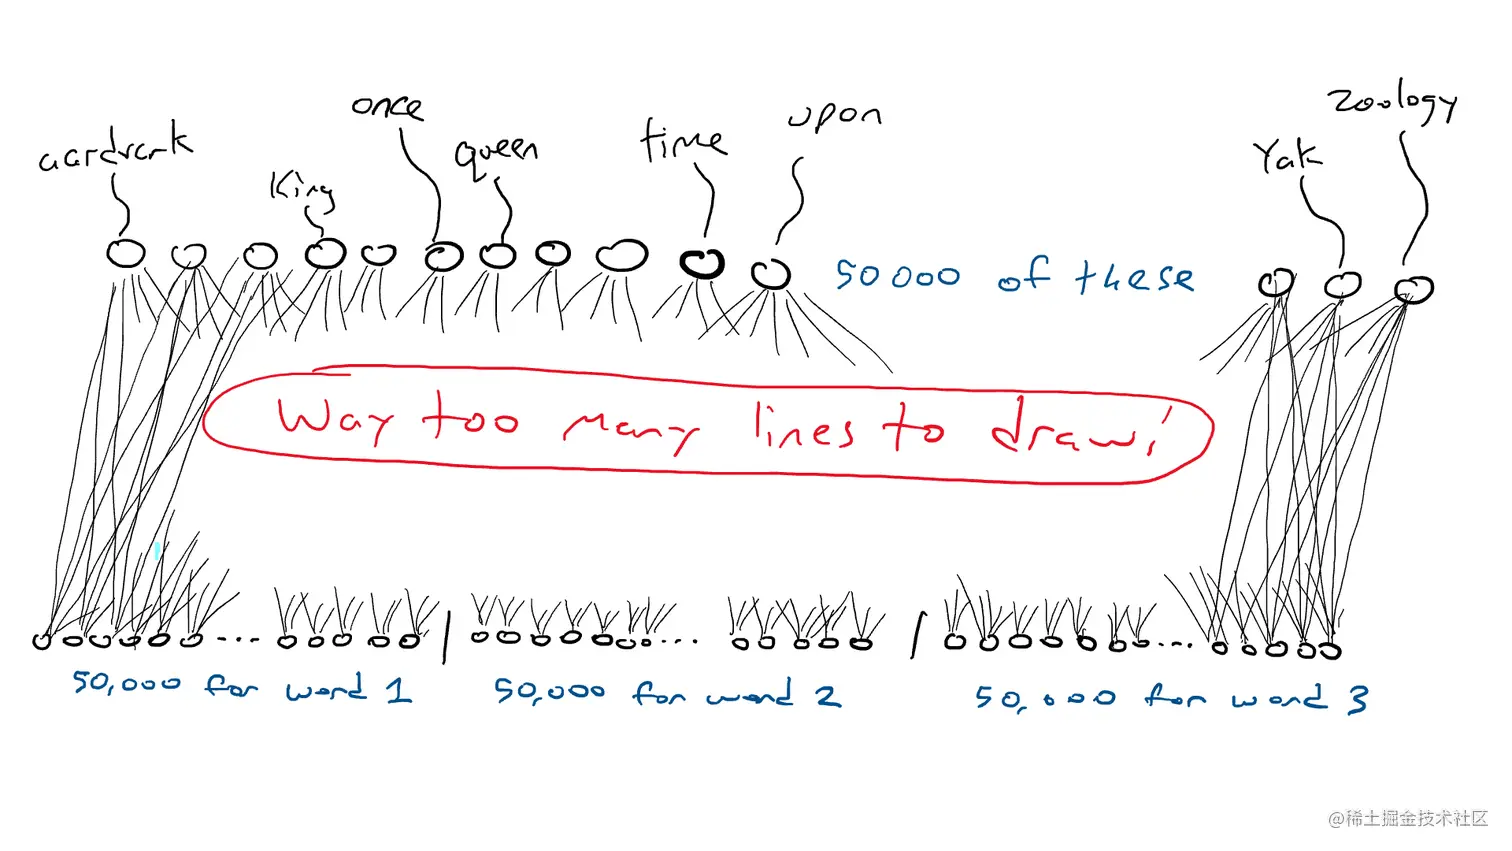 aardvark
King
once
queen
time
upon
Yak
zoology
50000 of these
Way too many lines to draw!
50,000 for word 1
50,000 for word 2
50,000 for word 3
@稀土掘金技术社区